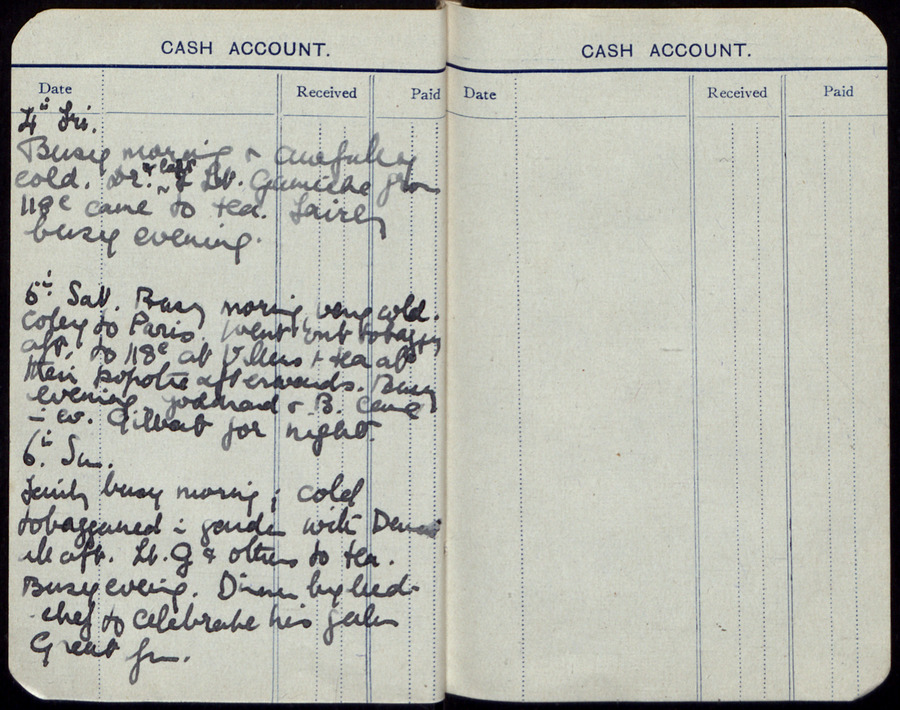 CASH ACCOUNT.
Date Received Paid
4th Fri.
Busy morning & carefully
cold. Dr. & Capt & Lt. from
118e came to tea. Fairly
busy evening.
5th Sat. Busy morning very cold.
to Paris, went out
aft. to 118e at + tea at
their popote afterwards. Busy
evening, Goddard & B. came
w. Gilbert for night.
6th Sun.
Fairly busy morning; cold
tobagganed in garden with
all aft. Lt. G & others to tea.
Busy evening. Dinner by
chef to celebrate his
Great fun.
CASH ACCOUNT.
Date Received Paid